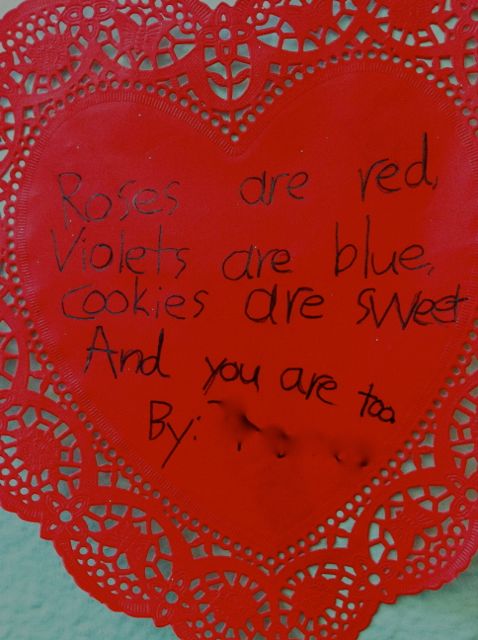 Roses are red,
Violets are blue,
cookies are sweet
And you are too
By: